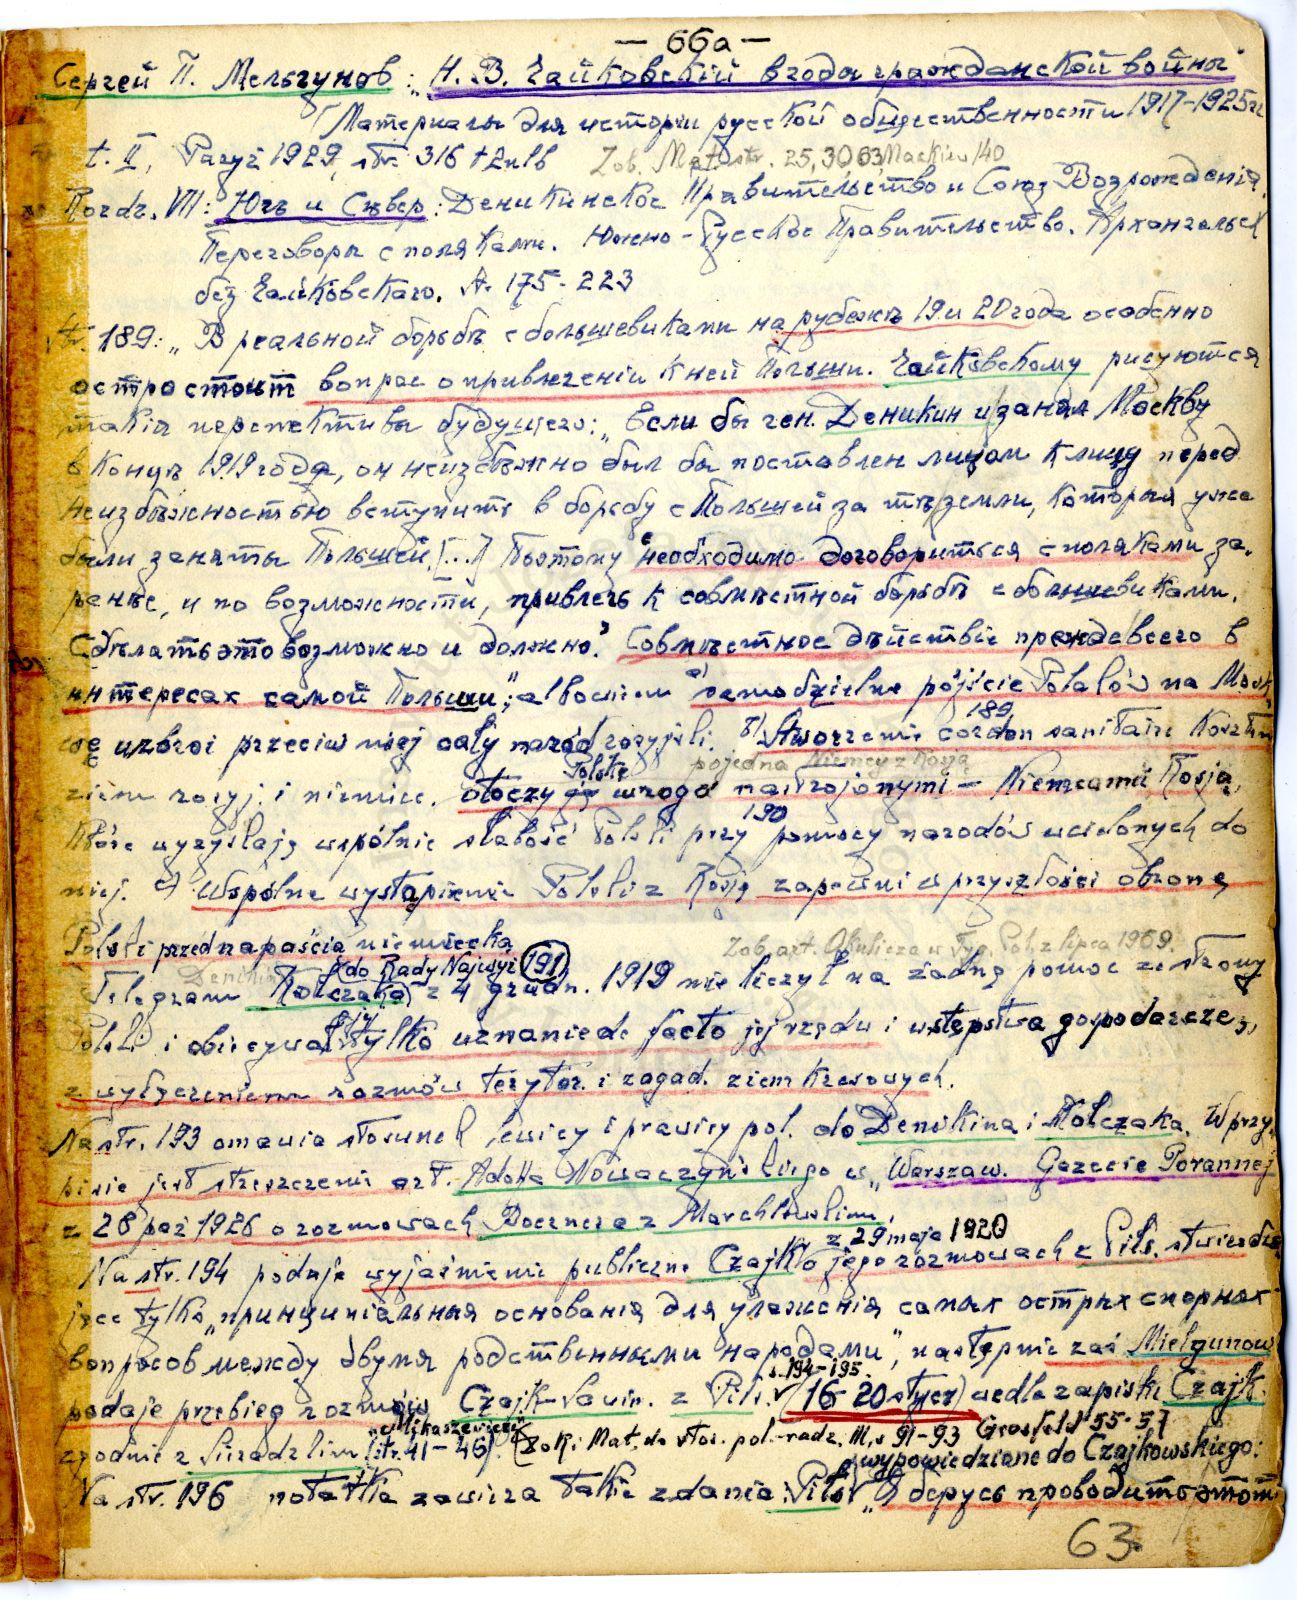 — 66a —
Сергей П. Мельгунов: „Н. В. Чайковский в года гражданской войны
(Материалы для истории русской общественности 1917–1925 гг
t. II, Paryż 1929, str. 316 + 2nlb Zob. Mat. str. 25, 30, 63 Mackiew 140
Rozdz. VII: Югъ и Сѣвер: Деникинское Правительство и Союз Возрожденія.
Переговоры с поляками. Южно-Русское Правительство. Архангельск
без Чайковскаго. s. 175-223
str. 189: „В реальной борьбѣ с большевиками на рубежѣ 19 и 20 года особенно
остро стоит вопрос о привлеченіи к ней Польши. Чайковскому рисуются
такія перспективы будущего: „Если бы ген. Деникин и занял Москву
в концѣ 1919 года, он неизбѣжно был бы поставлен лицом к лицу перед
неизбѣжностью вступить в борьбу с Польшей за тѣ земли, которыя уже
были заняты Польшей. [...] Поэтому необходимо договориться с поляками за-
ранѣе, и по возможности, привлечь к совмѣстной борьбѣ с большевиками.
Сдѣлать это возможно и должно". Совмѣстное дѣйствіе прежде всего в
интересах самой Польши"; albowiem a) samodzielne pójście Polaków na Mosk
wę uzbroi przeciw niej cały naród rosyjski. 189 b) Stworzenie cordon sanitaire kosztem
pojedna Niemcy z Rosją
ziem rosyj. i niemiec. otoczy Polskę wrogo nastrojonymi — Niemcami i Rosją,
które wyzyskają wspólnie słabość Polski przy 190 pomocy narodów wcielonych do
niej. c) Wspólne wystąpienie Polski z Rosją zapewni w przyszłości obronę
Polski przed napaścią niemiecką Zob. art. Okulicza w Tyg. Pol. z lipca 1969.
Denikin (do Rady Najwyż 191
Telegram Kołczaka z 4 grudn. 1919 nie liczył na żadną pomoc ze strony
Polski i obiecywał jej tylko uznanie de facto jej rządu i ustępstwa gospodarcze,
z wyłączeniem rozmów terytor. i zagad. ziem kresowych.
Na str. 193 omawia stosunek lewicy i prawicy pol. do Denikina i Kołczaka. W przy-
pisie jest streszczenie art. Adolfa Nowaczyńskiego w „Warszaw. Gazecie Porannej
z 28 paź 1926 o rozmowach Boernera z Marchlewskim.
z 29 maja 1920
Na str. 194 podaje wyjaśnienie publiczne Czajk. o jego rozmowach z Piłs. stwierdza
jące tylko „принципіальныя основанія для улаженія самых острых спорных
вопросов между двумя родственными народами", następnie zaś Mielgunow
s. 194–195.
podaje przebieg rozmów Czajk-Sawin. z Piłs. (16-20 stycz) wedle zapiski Czajk.
Mikaszewicze
zgodnie z Sieradzkim (str. 41-46). (Dok. i Mat. do stos. pol-radz. III, s 91-93 Grosfeld 55-57
wypowiedziane do Czajkowskiego:
Na str. 196 notatka zawiera takie zdania: Piłs „Я берусь проводить этот
63